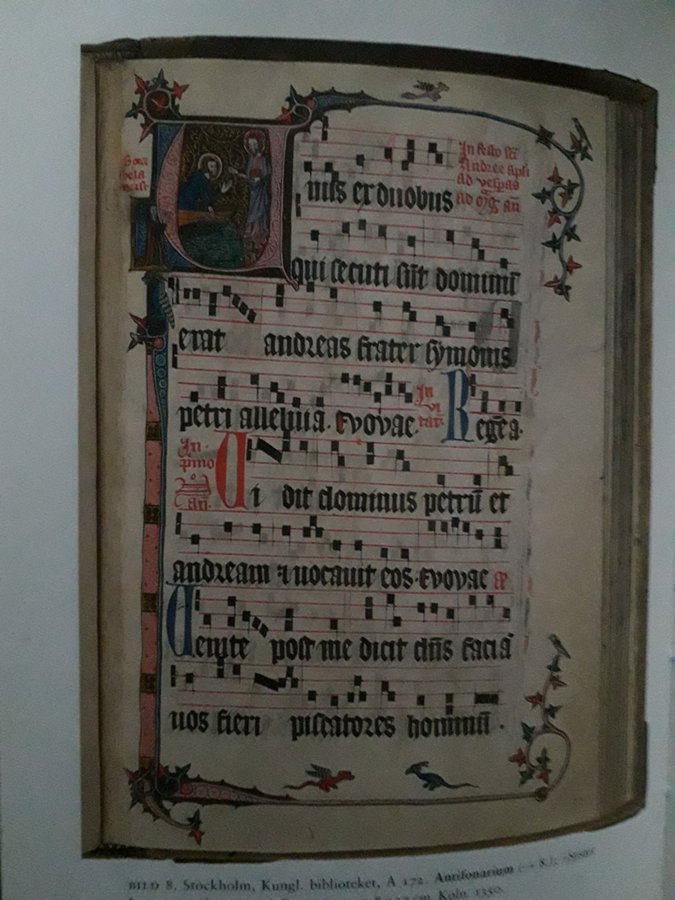 In festo sci
Andree apli
ad vesperas
nus ex duobus
qui secuti sūt dominū
erat andreas frater symonis
petri alleluia. Evovae.
In
vi
tat
Regē a.
In
pmo
an.
Vi dit dominus petrū et
andream ⁊ uocauit eos. Evovae
Uenite post me dicit dn̄s faciā
uos fieri piscatores hominū.
BILD 8. Stockholm, Kungl. biblioteket, A 172. Antifonarium
cm. Köln. 1350.